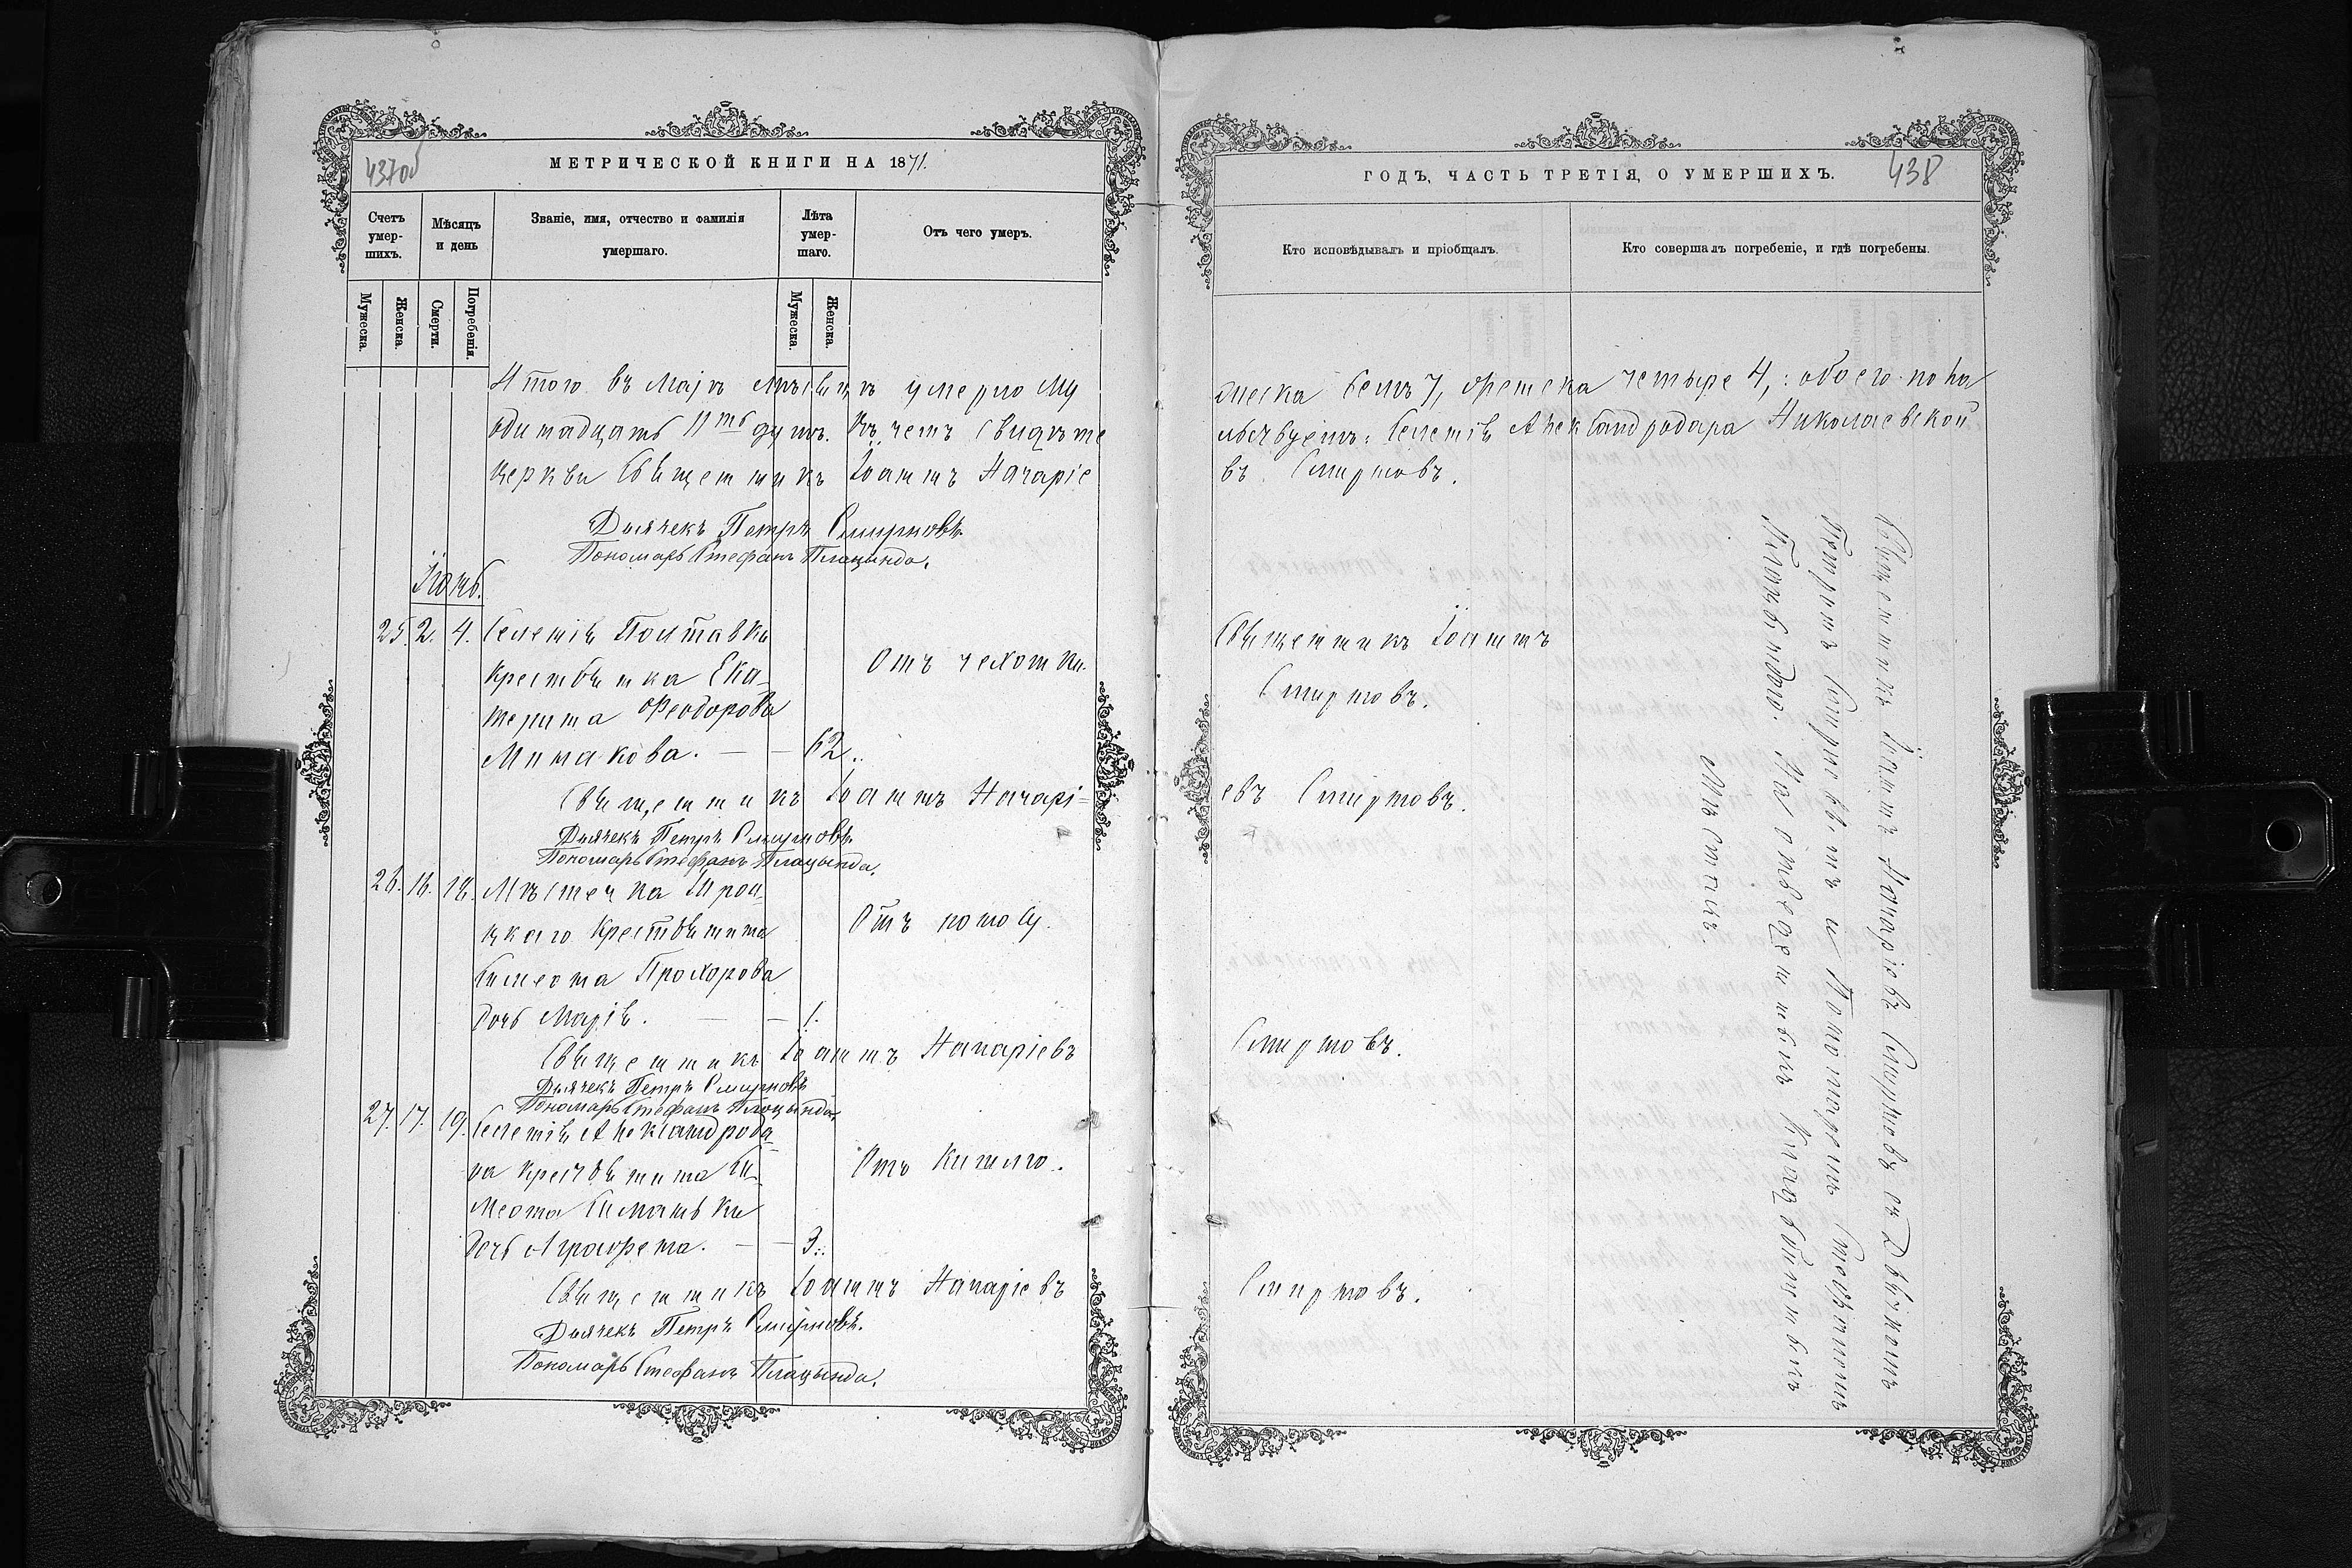 437об
МЕТРИЧЕСКОЙ КНИГИ НА 1871.
Счетъ умер-шихъ.
Мѣсяцъ и день
Званіе, имя, отчество и фамилія умершаго.
Лѣта умер-шаго.
Отъ чего умеръ.
Мужеска.
Женска.
Смерти.
Погребенія.
Мужеска.
Женска.
Итого въ Маѣ мѣсяцѣ умерло Му
одинадцать 11ть душъ. Въ чемъ свидѣте
церкви Священникъ Іоаннъ Назаріе
Дьячекъ Петръ Смирновъ
Пономарь Стефанъ Плацында.
Іюнь.
25. 2. 4. Селенія Полтавки
крестьянка Ека-
терина Феодорова
Минакова. — — 62..
Отъ чехотки
Священникъ Іоаннъ Назарі=
Дьячекъ Петръ Смирновъ
Пономарь Стефанъ Плацында.
26. 16. 18. Мѣстечка Трои-
цкаго крестьянина
Симеона Прохорова
дочь Марія. — — 1.
Отъ поносу.
Священникъ Іоаннъ Назаріевъ
Дьячекъ Петръ Смирновъ
Пономарь Стефанъ Плацында.
27. 17. 19. Селенія Александрода-
ра крестьянина Си-
меона
дочь Агрофена. — — 3..
Отъ
Священникъ Іоаннъ Назаріевъ
Дьячекъ Петръ Смирновъ.
Пономарь Стефанъ Плацында.
ГОДЪ, ЧАСТЬ ТРЕТІЯ, О УМЕРШИХЪ.
438
Кто исповѣдывалъ и пріобщалъ.
Кто совершалъ погребеніе, и гдѣ погребены.
жеска семъ 7, женска четыре 4,: обоего пола
льствуетъ: Селенія Александродара Николаевской
въ Смирновъ.
Священникъ Іоаннъ
Смирновъ.
евъ Смирновъ.
Смирновъ.
Смирновъ.
Священникъ Іоаннъ Назаріевъ Смирновъ съ Дьячкомъ
Петромъ Смирновымъ и Пономаремъ Стефаномъ
Плацындою. На отведенномъ кладбищномъ
мѣстѣ.